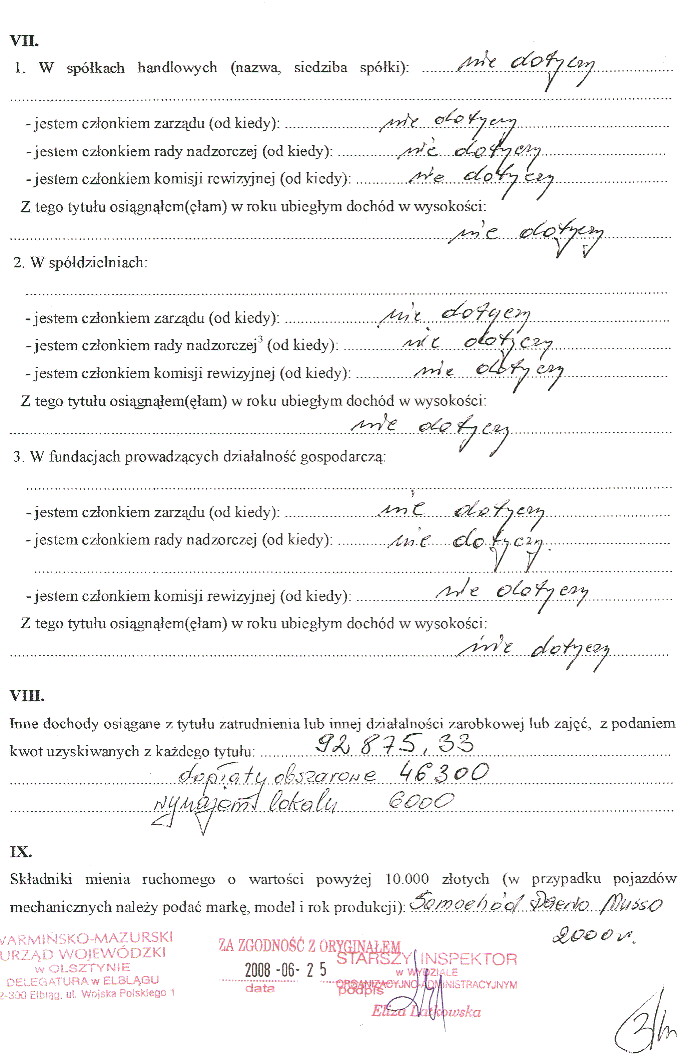 VII.
1. W spółkach handlowych (nazwa, siedziba spółki): nie dotyczy
- jestem członkiem zarządu (od kiedy): nie dotyczy
- jestem członkiem rady nadzorczej (od kiedy): nie dotyczy
- jestem członkiem komisji rewizyjnej (od kiedy): nie dotyczy
Z tego tytułu osiągnąłem(ęłam) w roku ubiegłym dochód w wysokości:
nie dotyczy
2. W spółdzielniach:
- jestem członkiem zarządu (od kiedy): nie dotyczy
- jestem członkiem rady nadzorczej³ (od kiedy): nie dotyczy
- jestem członkiem komisji rewizyjnej (od kiedy): nie dotyczy
Z tego tytułu osiągnąłem(ęłam) w roku ubiegłym dochód w wysokości:
nie dotyczy
3. W fundacjach prowadzących działalność gospodarczą:
- jestem członkiem zarządu (od kiedy): nie dotyczy
- jestem członkiem rady nadzorczej (od kiedy): nie dotyczy.
- jestem członkiem komisji rewizyjnej (od kiedy): nie dotyczy
Z tego tytułu osiągnąłem(ęłam) w roku ubiegłym dochód w wysokości:
nie dotyczy
VIII.
Inne dochody osiągane z tytułu zatrudnienia lub innej działalności zarobkowej lub zajęć, z podaniem
kwot uzyskiwanych z każdego tytułu: 92 875,33
dopłaty obszarowe 46300
wynajem lokalu 6000
IX.
Składniki mienia ruchomego o wartości powyżej 10.000 złotych (w przypadku pojazdów
mechanicznych należy podać markę, model i rok produkcji): Samochód Daewo Musso
2000 r.
WARMIŃSKO-MAZURSKI
URZĄD WOJEWÓDZKI
W OLSZTYNIE
DELEGATURA w ELBLĄGU
2-300 Elbląg, ul. Wojska Polskiego 1
ZA ZGODNOŚĆ Z ORYGINAŁEM
2008 -06- 2 5
data podpis
STARSZY INSPEKTOR
W WYDZIALE
ORGANIZACYJNO-ADMINISTRACYJNYM
Eliza Latkowska